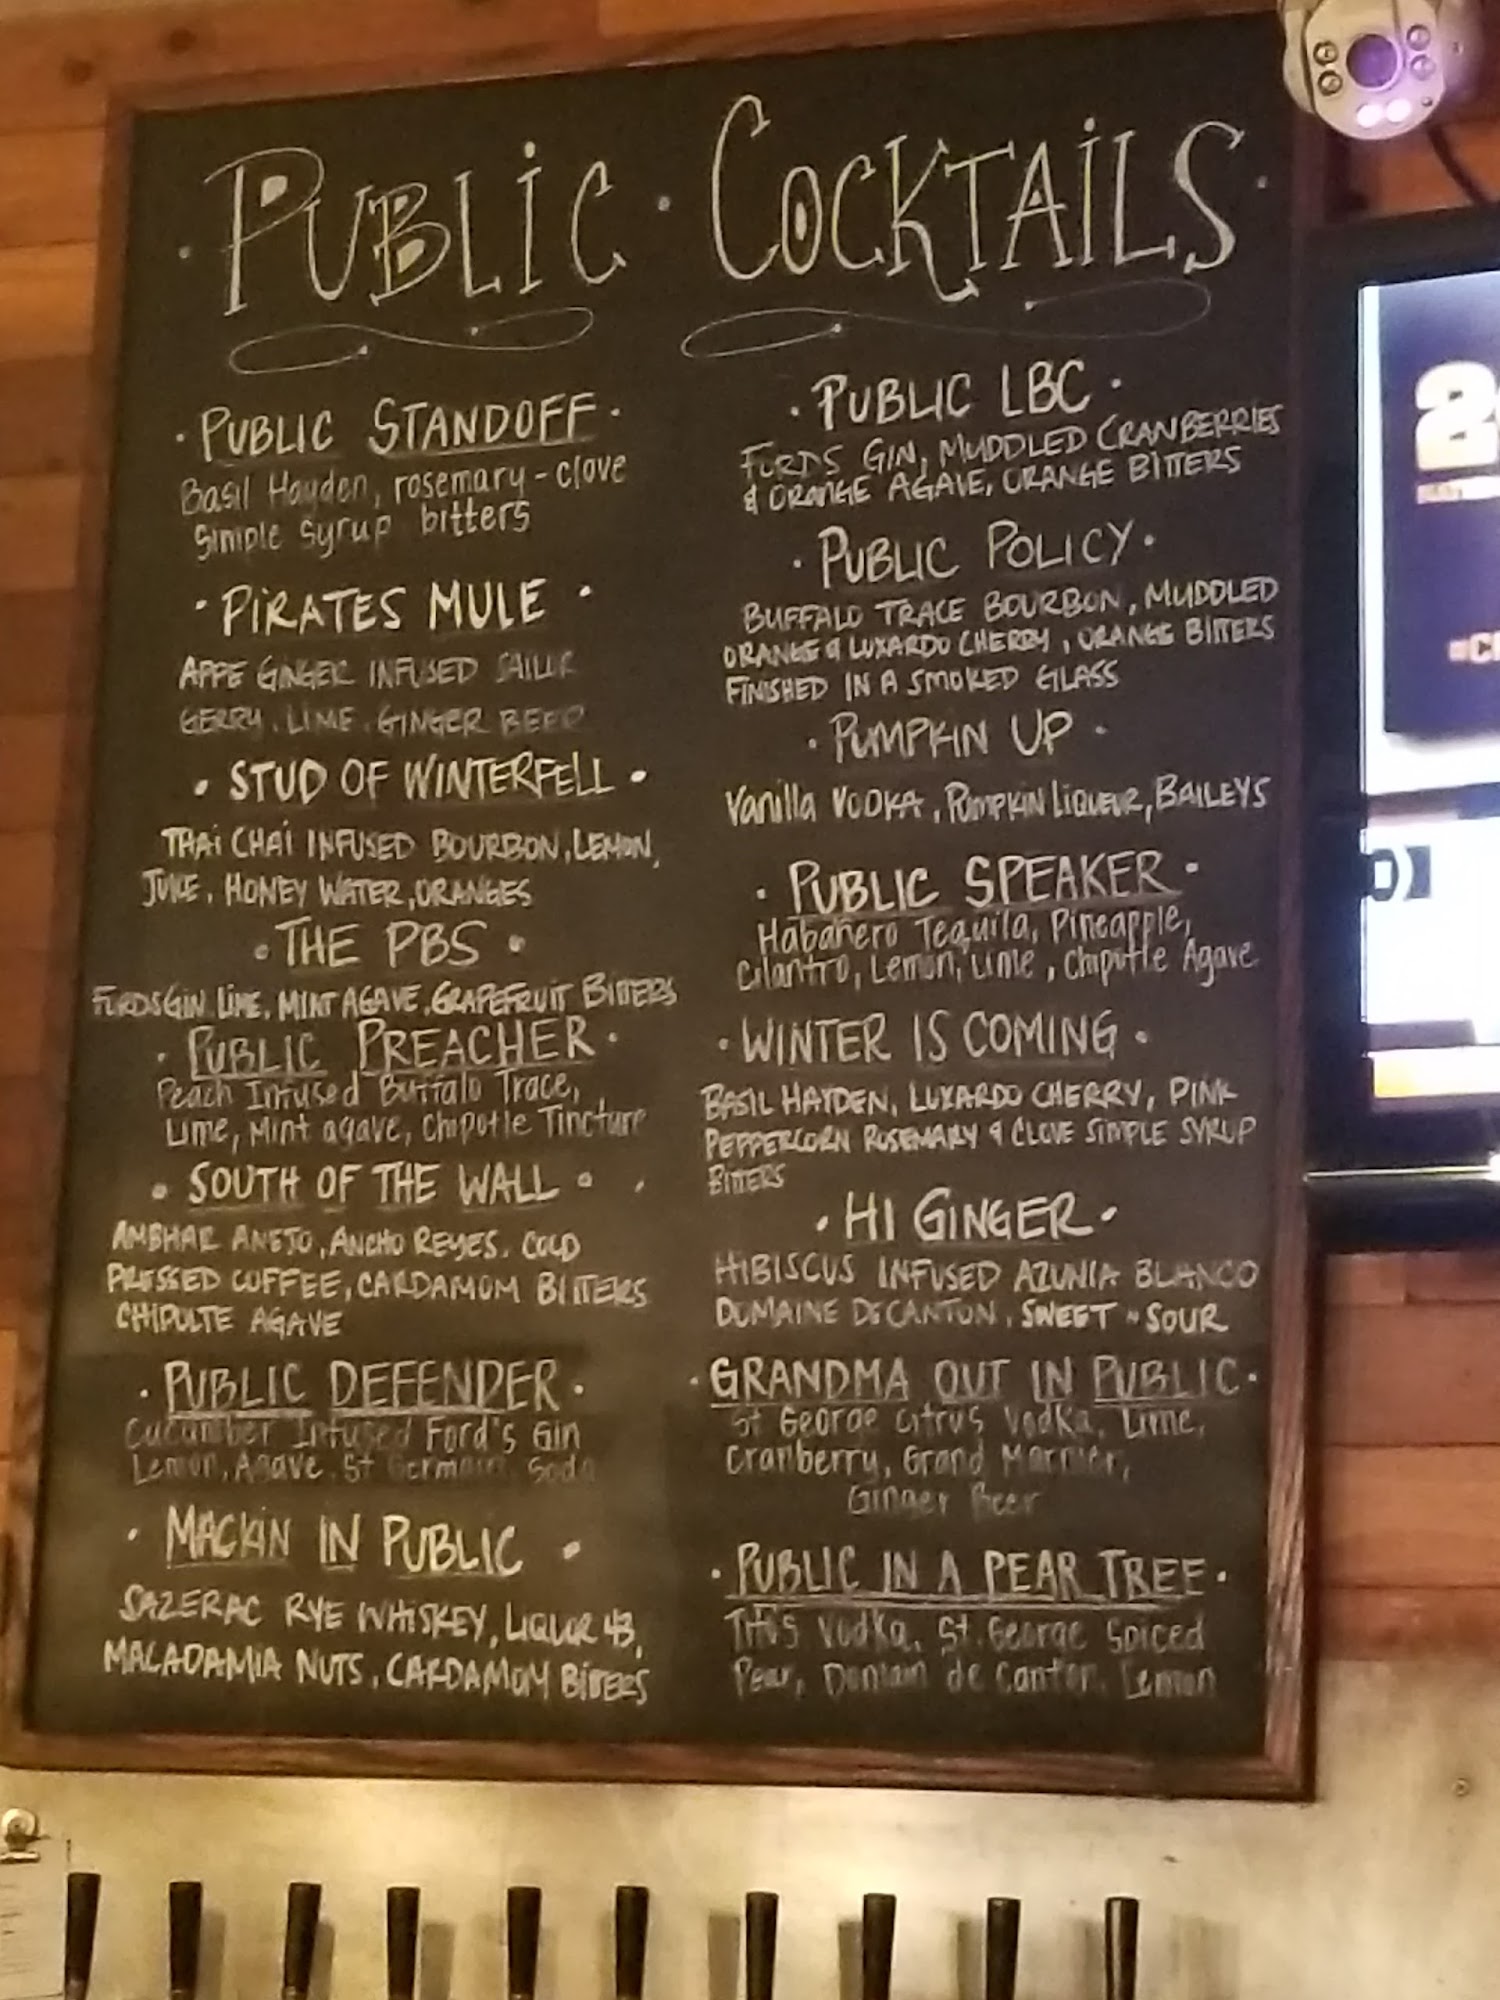 PUBLIC · COCKTAILS
· PUBLIC STANDOFF ·
Basil Hayden, rosemary-clove
Simple Syrup bitters
· PIRATES MULE ·
APPE GINGER INFUSED SAILOR
GERRY, LIME, GINGER BEER
· STUD OF WINTERFELL ·
THAI CHAI INFUSED BOURBON, LEMON,
JUICE, HONEY WATER, ORANGES
· THE PBS ·
FORDS GIN, LIME, MINT AGAVE, GRAPEFRUIT BITTERS
· PUBLIC PREACHER ·
Peach Infused Buffalo Trace,
Lime, Mint agave, Chipotle Tincture
· SOUTH OF THE WALL ·
AMBHAR ANEJO, ANCHO REYES, COLD
PRESSED COFFEE, CARDAMOM BITTERS
CHIPOLTE AGAVE
· PUBLIC DEFENDER ·
Cucumber Infused Ford's Gin
Lemon, Agave, St Germain, Soda
· MACKIN IN PUBLIC ·
SAZERAC RYE WHISKEY, LIQUOR 43,
MACADAMIA NUTS, CARDAMOM BITTERS
· PUBLIC LBC ·
FORDS GIN, MUDDLED CRANBERRIES
& ORANGE AGAVE, ORANGE BITTERS
· PUBLIC POLICY ·
BUFFALO TRACE BOURBON, MUDDLED
ORANGE & LUXARDO CHERRY, ORANGE BITTERS
FINISHED IN A SMOKED GLASS
· PUMPKIN UP ·
Vanilla VODKA, PUMPKIN LIQUEUR, BAILEYS
· PUBLIC SPEAKER ·
Habañero Tequila, Pineapple,
Cilantro, Lemon, Lime, Chipotle Agave
· WINTER IS COMING ·
BASIL HAYDEN, LUXARDO CHERRY, PINK
PEPPERCORN ROSEMARY & CLOVE SIMPLE SYRUP
BITTERS
· HI GINGER ·
HIBISCUS INFUSED AZUNIA BLANCO
DOMAINE DE CANTON, SWEET N SOUR
· GRANDMA OUT IN PUBLIC ·
St George Citrus Vodka, Lime,
Cranberry, Grand Marnier,
Ginger Beer
· PUBLIC IN A PEAR TREE ·
Tito's Vodka, St. George Spiced
Pear, Domain de Canton, Lemon